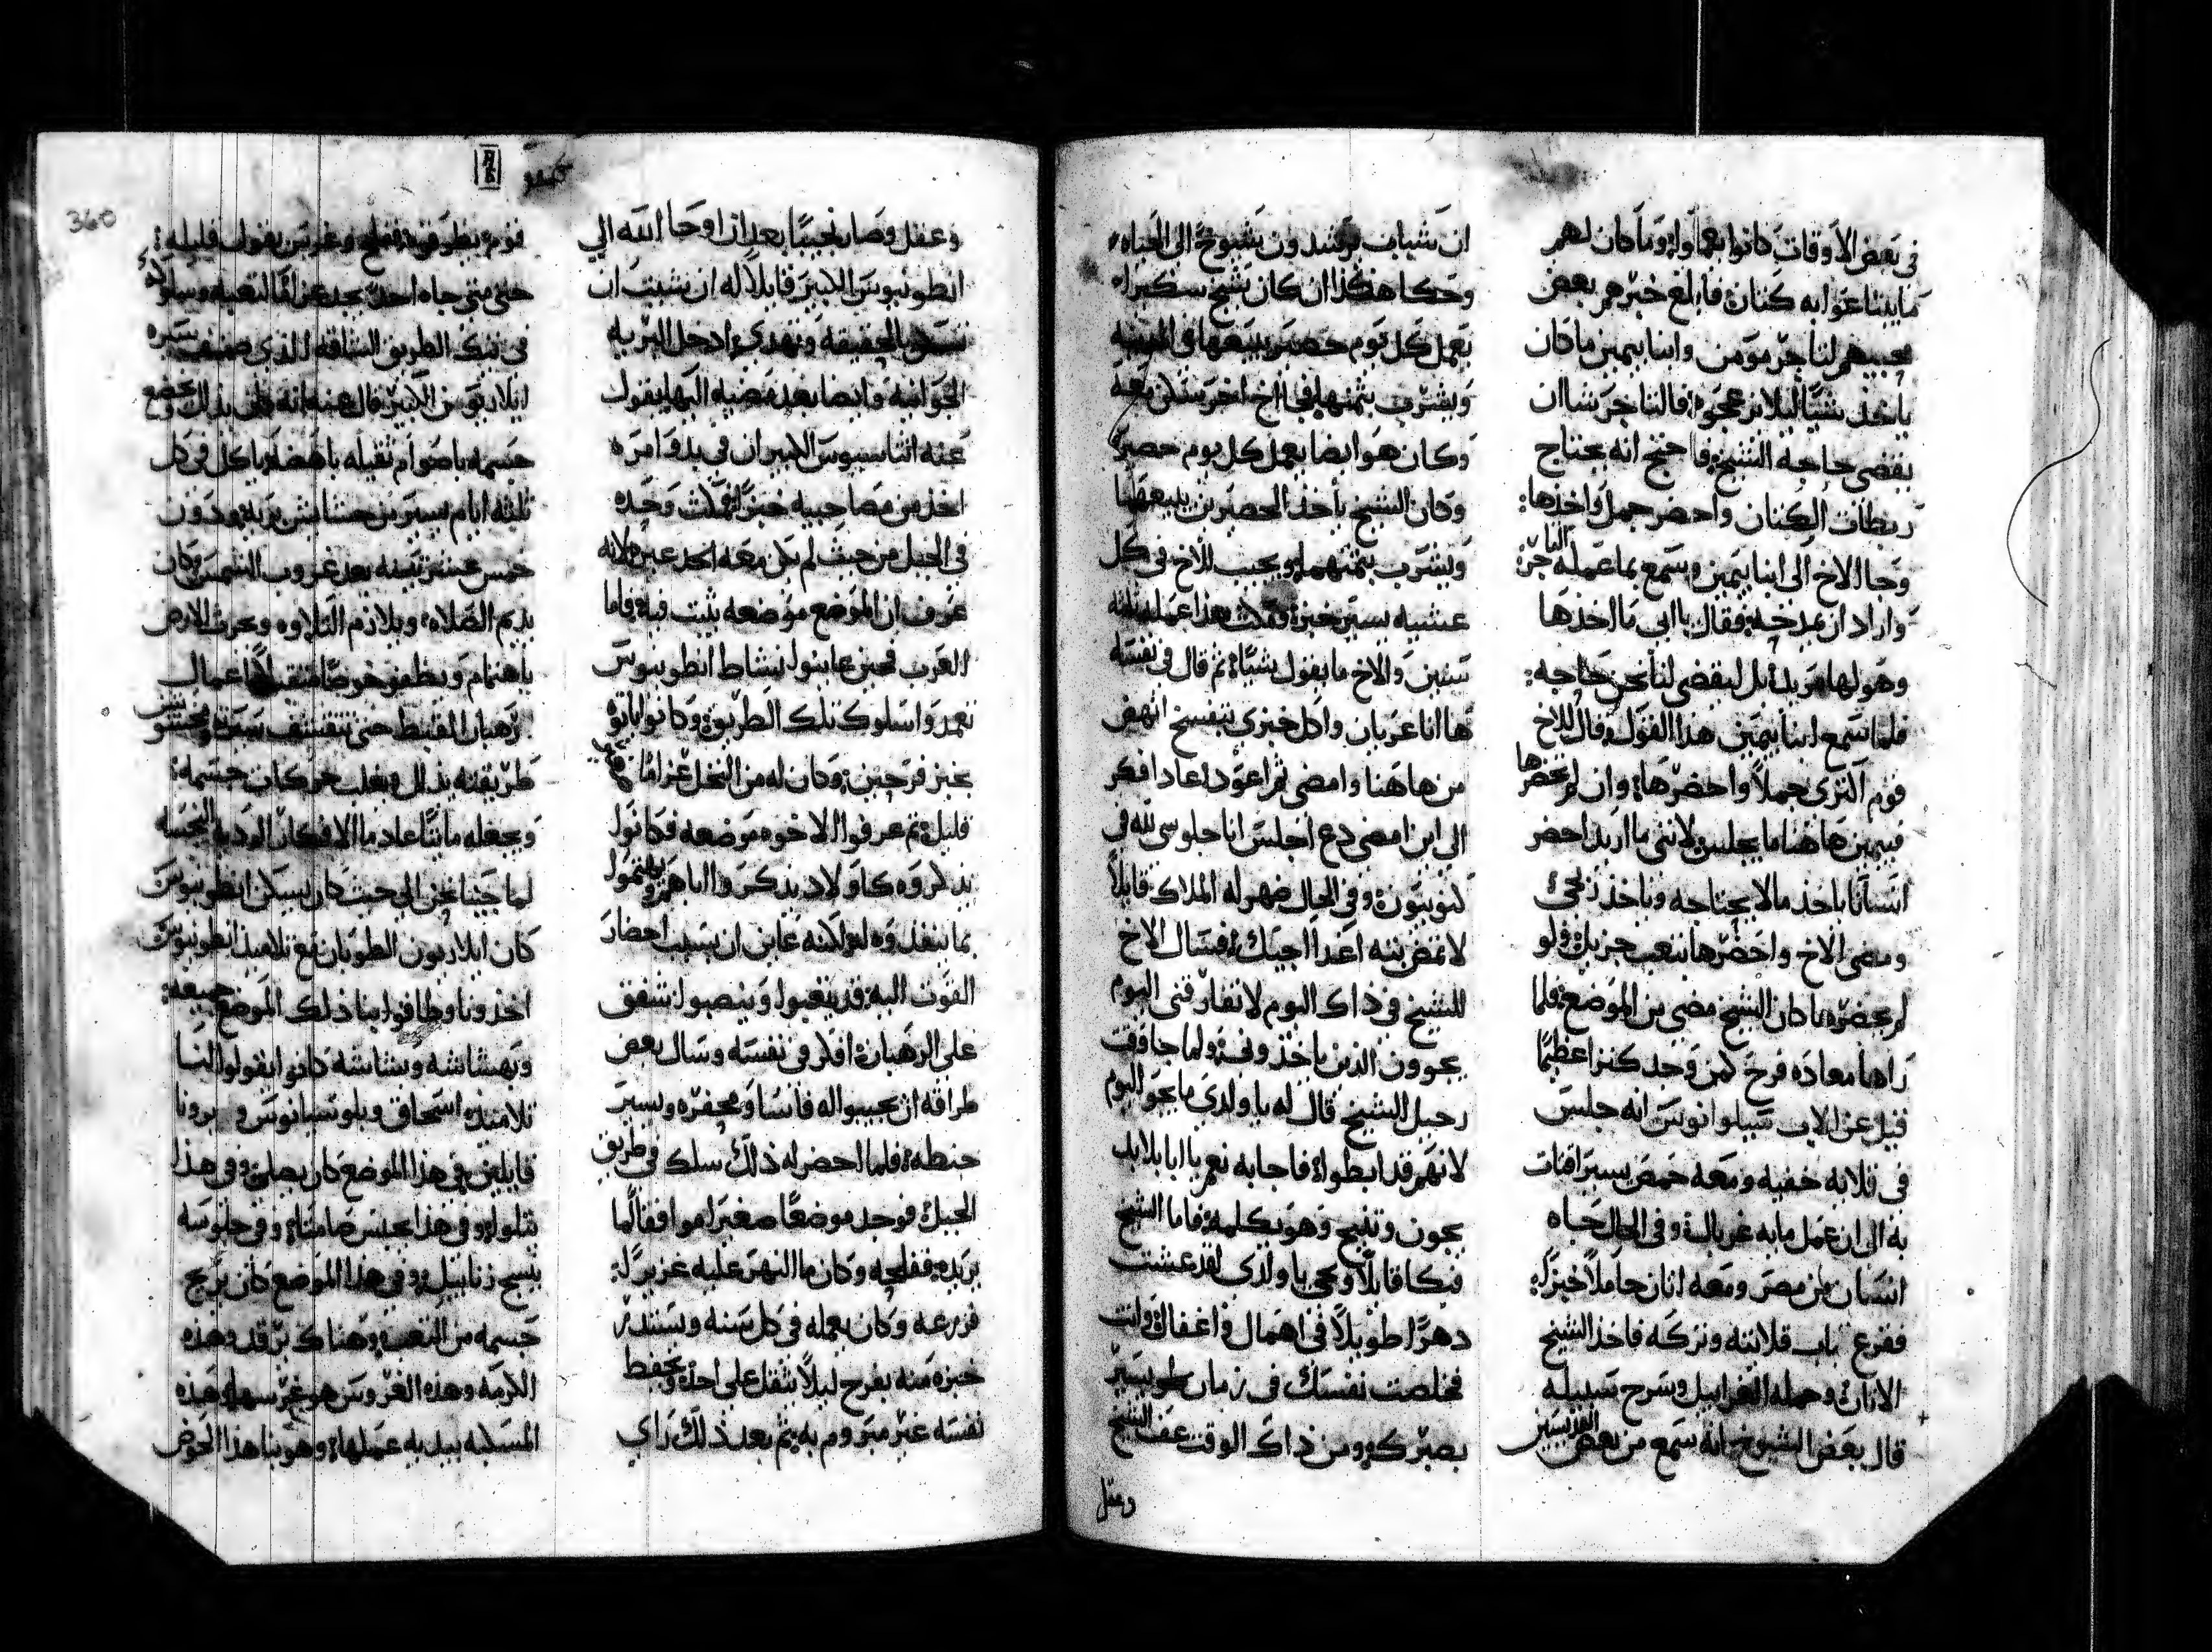 في بعض الاوقات كانوا يعملوا وما كان لهم
ما يبتاعوا به كتان فابلغ خبرهم بعض
محبيهم لتاجر مومن وابنا بيمين ما كان
ياخذ شيا ليلا يزعجوه فالتاجر شا ان
يقضي حاجة الشيخ فاحتج انه يحتاج
ربطات الكتان واحضر جمل واخذها
وجا الاخ الى ابنا بيمين وسمع بما عمله التاجر
واراد ان يمدحه فقال يا ابي ما اخذها
وهو لها مريد بل ليقضي لنا نحن حاجه
فلما سمع ابنا بيمين هذا القول قال للاخ
قوم اكتري جملا واحضرها وان لم تحضرها
فبيمين هاهنا ما يجلس لانني ما اريد احضر
انسانا ياخذ ما لا يحتاجه وياخذ ربحي
ومضى الاخ واحضرها بتعب جزيل ولو
لم يحضرها كان الشيخ مضى من الموضع فلما
راها معاده فرح كمن وجد كنزا عظيما
قيل عن الاب سيلوانوس انه جلس
في قلايه خفيه ومعه حمص يسير اقتات
به الى ان عمل مايه غربال وفي الحال جاه
انسان من مصر ومعه اتان حاملا خبز له
فقرع باب قلايته وتركه فاخذ الشيخ
الاتان وحمله الغرابيل وسرح سبيله
قال بعض الشيوخ انه سمع من بعض القديسين
ان شباب يرشدون شيوخ الى الحياه
وحكا هكذا ان كان شيخ سكير
يعمل كل يوم حصير يبيعها في القريه
ويشرب بثمنها فجا اخ اخر سكن معه
وكان هو ايضا يعمل كل يوم حصير
وكان الشيخ ياخذ الحصيرين يبيعهما
ويشرب بثمنهما ويجيب للاخ في كل
عشيه يسير خبز فمكث بهذا عمله ثلثه
سنين والاخ ما يقول شيا ثم قال في نفسه
ها انا عريان واكل خبزي بتفسخ انهض
من هاهنا وامضي ثم اعود اعاد افكر
الى اين امضي دع اجلس انا جلوسي لله في
كنوبيون وفي الحال ظهر له الملاك قايلا
لا تمض بته اغدا اجيك فسال الاخ
للشيخ في ذاك اليوم لا تفارقني اليوم
يجوون الذين ياخذوني ولما جا وقت
رحيل الشيخ قال له يا ولدي ما يجو اليوم
لانهم قد ابطوا فاجابه نعم يا ابا بلا بد
يجون وتنيح وهو يكلمه فاما الشيخ
فبكا قايلا ويحي يا ولدي لقد عشت
دهرا طويلا في اهمال واغفال وانت
خلصت نفسك في زمان يسير
بصبرك ومن ذاك الوقت عف الشيخ
وعقل
وعقل وصار نجيبا بعد ان اوحا الله الي
انطونيوس الكبير قايلا له ان شيت ان
تسكن بالحقيقه وتهدي ادخل البريه
الجوانيه وايضا بعد مضيه اليها يقول
عنه اثناسيوس الكبير ان في بدو امره
اخذ من مصاحبيه خبز ومكث وحده
في الجبل من حيث لم يكن معه احد غيره لانه
عرف ان الموضع موضعه يثبت فيه فاما
العرب فحين عاينوا نشاط انطونيوس
تعمدوا سلوك تلك الطريق وكانوا ياتوه
بخبز فرحين وكان له من النخل عزاما
قليل ثم عرفوا الاخوه موضعه فكانوا
يذكروه كاولاد يذكروا اباهم ويهتموا
بما ينفذوه له لكنه عاين ان بسبب احضار
القوت اليه قد يتعبوا وينصبوا شفق
على الرهبان افكر في نفسه وسال بعض
طراقه ان يجيبوا له فاسا ومحفره ويسير
حنطه فلما احضر له ذلك سلك في طريق
الجبل فوجد موضعا صغيرا موافقا لما
يريده ففلحه وكان ما النهر عليه غزير له
فزرعه وكان يعمله في كل سنه ويستدر
خبزه منه بفرح ليلا يثقل على احد ويحفظ
نفسه غير مبروم به ثم بعد ذلك راي
قوم يطرقوه ففلح وغرس بقول قليله
حتى متى جاه احد يجد عزا لتعبه وسلوكه
في تلك الطريق الشاقه الذي صنف سيره
ايلاريون الكبير قال عنه انه ظن بذلك وضع
جسمه باصوام ثقيله باهضه ياكل في كل
ثلثه ايام يسير من حشايش بريه ودون
خمس عشر تينه بعد غروب الشمس وكان
يديم الصلاه ويلازم التلاوه ويحرث الارض
باهتمام ويظفر خوصا متقبلا اعمال
رهبان القبط حتى تتقشف سيرته
طريقته يذلل ويغلب حركات جسمه
ويجعله ماتيا عادما الافكار الرديه النجسه
لما جينا نحن الى حيث كان يسكن انطونيوس
كان ايلاريون الطوبان مع تلاميذ انطونيوس
اخذونا وطافوا بنا ذلك الموضع جميعه
وبهشاشه وبشاشه كانوا يقولوا لنا
تلاميذه اسحاق وبلوسيانوس
قايلين في هذا الموضع كان يصلي وفي هذا
يتلوا وفي هذا يجلس صامتا وفي جلوسه
ينسج زنابيل وفي هذا الموضع كان يريح
جسمه من التعب وهناك يرقد وهذه
الكرمه وهذه الغروس هو غرسها وهذه
المسكبه بيديه عملها وهو بنا هذا الحوض
360